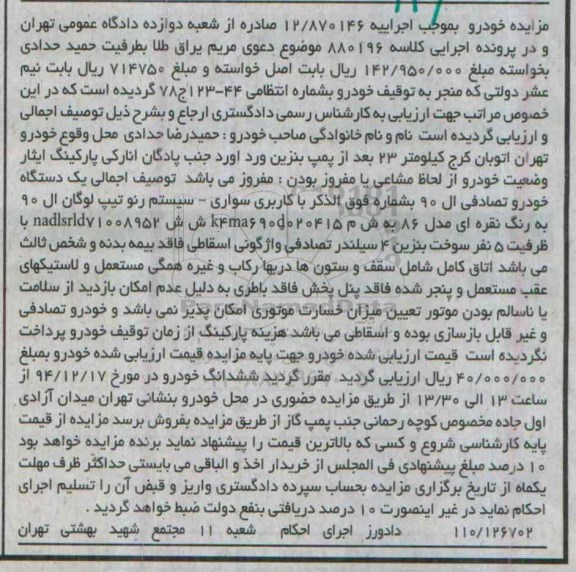 مزایده خودرو بموجب اجراییه ۱۲/۸۷۰۱۴۶ صادره از شعبه دوازده دادگاه عمومی تهران
و در پرونده اجرایی کلاسه ۸۸۰۱۹۶ موضوع دعوی مریم یراق طلا بطرفیت حمید حدادی
بخواسته مبلغ ۱۴۲/۹۵۰/۰۰۰ ریال بابت اصل خواسته و مبلغ ۷۱۴۷۵۰ ریال بابت نیم
عشر دولتی که منجر به توقیف خودرو بشماره انتظامی ۴۴-۱۲۳ج۷۸ گردیده است که در این
خصوص مراتب جهت ارزیابی به کارشناس رسمی دادگستری ارجاع و بشرح ذیل توصیف اجمالی
و ارزیابی گردیده است نام و نام خانوادگی صاحب خودرو : حمیدرضا حدادی محل وقوع خودرو
تهران اتوبان کرج کیلومتر ۲۳ بعد از پمپ بنزین ورد اورد جنب پادگان انارکی پارکینگ ایثار
وضعیت خودرو از لحاظ مشاعی یا مفروز بودن : مفروز می باشد توصیف اجمالی یک دستگاه
خودرو تصادفی ال ۹۰ بشماره فوق الذکر با کاربری سواری - سیستم رنو تیپ لوگان ال ۹۰
به رنگ نقره ای مدل ۸۶ به ش م k۴ma۶۹۰d۰۲۰۴۱۵ ش ش nadlsrld۷۱۰۰۸۹۵۲ با
ظرفیت ۵ نفر سوخت بنزین ۴ سیلندر تصادفی واژگونی اسقاطی فاقد بیمه بدنه و شخص ثالث
می باشد اتاق کامل شامل سقف و ستون ها دربها رکاب و غیره همگی مستعمل و لاستیکهای
عقب مستعمل و پنجر شده فاقد پنل پخش فاقد باطری به دلیل عدم امکان بازدید از سلامت
یا ناسالم بودن موتور تعیین میزان خسارت موتوری امکان پذیر نمی باشد و خودرو تصادفی
و غیر قابل بازسازی بوده و اسقاطی می باشد هزینه پارکینگ از زمان توقیف خودرو پرداخت
نگردیده است قیمت ارزیابی شده خودرو جهت پایه مزایده قیمت ارزیابی شده خودرو بمبلغ
۴۰/۰۰۰/۰۰۰ ریال ارزیابی گردید مقرر گردید ششدانگ خودرو در مورخ ۹۴/۱۲/۱۷ از
ساعت ۱۳ الی ۱۳/۳۰ از طریق مزایده حضوری در محل خودرو بنشانی تهران میدان آزادی
اول جاده مخصوص کوچه رحمانی جنب پمپ گاز از طریق مزایده بفروش برسد مزایده از قیمت
پایه کارشناسی شروع و کسی که بالاترین قیمت را پیشنهاد نماید برنده مزایده خواهد بود
۱۰ درصد مبلغ پیشنهادی فی المجلس از خریدار اخذ و الباقی می بایستی حداکثر ظرف مهلت
یکماه از تاریخ برگزاری مزایده بحساب سپرده دادگستری واریز و قبض آن را تسلیم اجرای
احکام نماید در غیر اینصورت ۱۰ درصد دریافتی بنفع دولت ضبط خواهد گردید .
۱۱۰/۱۲۶۷۰۲ دادورز اجرای احکام شعبه ۱۱ مجتمع شهید بهشتی تهران